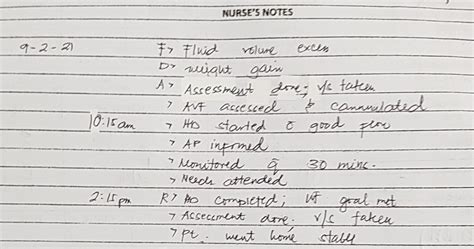 NURSE'S NOTES
9-2-21 F> Fluid volume excess
D> weight gain
A> Assessment done; v/s taken
> AVF assessed & cannulated
10:15am > HD started c̄ good flow
> AP informed
> Monitored q̄ 30 mins.
> Needs attended
2:15pm R> HD completed; UF goal met
> Assessment done. v/s taken
> Pt. went home stable